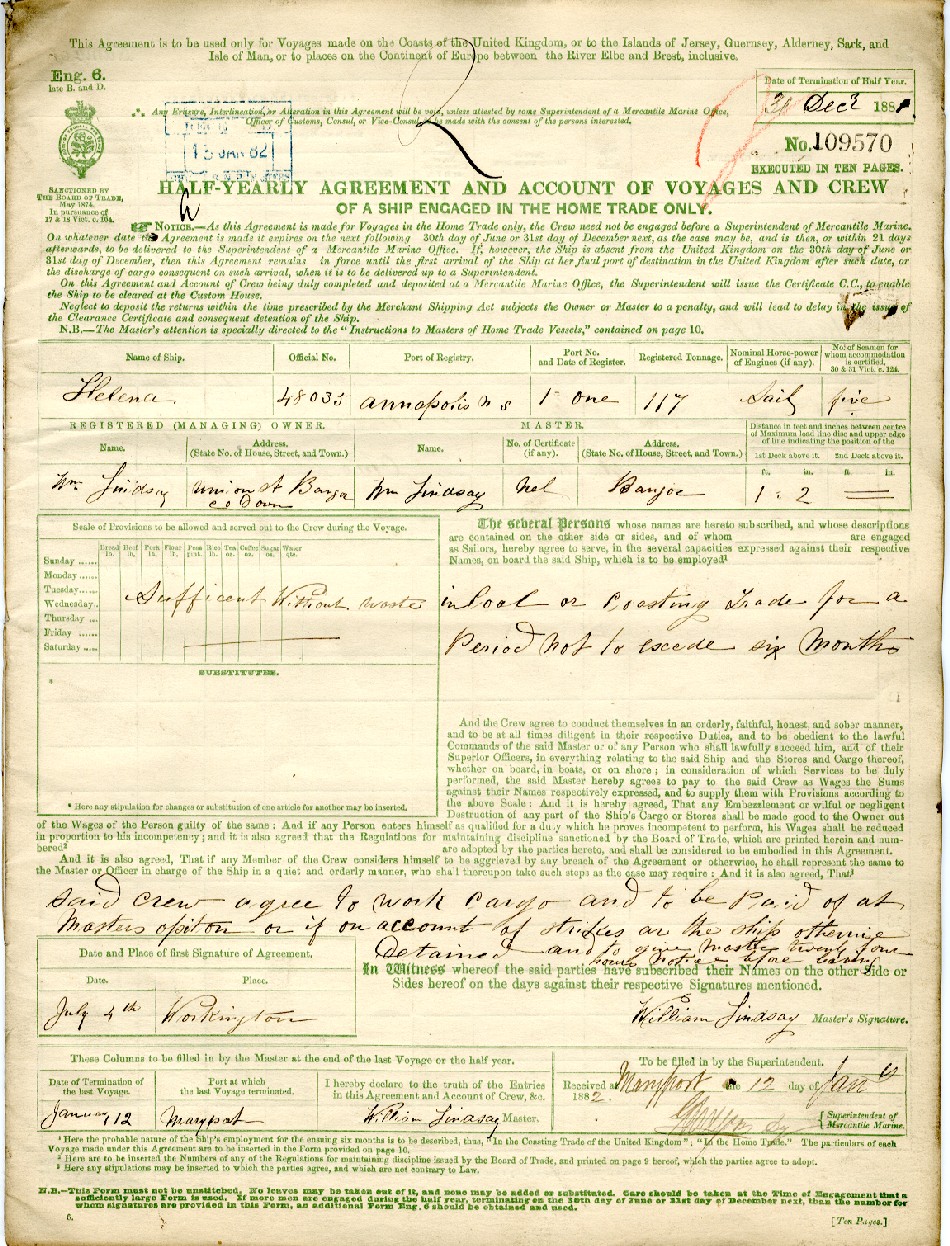 This Agreement is to be used only for Voyages made on the Coasts of the United Kingdom, or to the Islands of Jersey, Guernsey, Alderney, Sark, and
Isle of Man, or to places on the Continent of Europe between the River Elbe and Brest, inclusive.
Eng. 6.
late B. and D.
Date of Termination of Half Year.
31 Decr 1881
∴ Any Erasure, Interlineation, or Alteration in this Agreement will be void, unless attested by some Superintendent of a Mercantile Marine Office,
Officer of Customs, Consul, or Vice-Consul, to be made with the consent of the persons interested.
13 JAN 82
No. 109570
EXECUTED IN TEN PAGES.
SANCTIONED BY
THE BOARD OF TRADE,
May 1874,
In pursuance of
17 & 18 Vict. c. 104.
HALF-YEARLY AGREEMENT AND ACCOUNT OF VOYAGES AND CREW
OF A SHIP ENGAGED IN THE HOME TRADE ONLY.
NOTICE.—As this Agreement is made for Voyages in the Home Trade only, the Crew need not be engaged before a Superintendent of Mercantile Marine.
On whatever date the Agreement is made it expires on the next following 30th day of June or 31st day of December next, as the case may be, and is then, or within 21 days
afterwards, to be delivered to the Superintendent of a Mercantile Marine Office. If, however, the Ship is absent from the United Kingdom on the 30th day of June or
31st day of December, then this Agreement remains in force until the first arrival of the Ship at her final port of destination in the United Kingdom after such date, or
the discharge of cargo consequent on such arrival, when it is to be delivered up to a Superintendent.
On this Agreement and Account of Crew being duly completed and deposited at a Mercantile Marine Office, the Superintendent will issue the Certificate C.C., to enable
the Ship to be cleared at the Custom House.
Neglect to deposit the returns within the time prescribed by the Merchant Shipping Act subjects the Owner or Master to a penalty, and will lead to delay in the issue of
the Clearance Certificate and consequent detention of the Ship.
N.B.—The Master's attention is specially directed to the "Instructions to Masters of Home Trade Vessels," contained on page 10.
Name of Ship. Official No. Port of Registry. Port No. and Date of Register. Registered Tonnage. Nominal Horse-power of Engines (if any). No. of Seamen for whom accommodation is certified, 30 & 31 Vict. c. 124.
Helena 48033 annapolis n s 1 one 117 Sail five
REGISTERED (MANAGING) OWNER. MASTER. Distance in feet and inches between centre of Maximum load line disc and upper edge of line indicating the position of the
Name. Address. (State No. of House, Street, and Town.) Name. No. of Certificate (if any). Address. (State No. of House, Street, and Town.) 1st Deck above it. 2nd Deck above it.
ft. in. ft. in.
Wm Lindsay union st Bangor Wm Lindsay Nel Bangor 1 : 2
co Down
Scale of Provisions to be allowed and served out to the Crew during the Voyage.
Bread lb. Beef lb. Pork lb. Flour lb. Peas pint. Rice lb. Tea oz. Coffee oz. Sugar oz. Water qts.
Sunday
Monday
Tuesday
Wednesday
Thursday
Friday
Saturday
Sufficent Without waste
The several Persons whose names are hereto subscribed, and whose descriptions
are contained on the other side or sides, and of whom are engaged
as Sailors, hereby agree to serve, in the several capacities expressed against their respective
Names, on board the said Ship, which is to be employed¹
in Coal or Coasting Trade for a
Period not to excede six Months
SUBSTITUTES.
And the Crew agree to conduct themselves in an orderly, faithful, honest, and sober manner,
and to be at all times diligent in their respective Duties, and to be obedient to the lawful
Commands of the said Master or of any Person who shall lawfully succeed him, and of their
Superior Officers, in everything relating to the said Ship and the Stores and Cargo thereof,
whether on board, in boats, or on shore; in consideration of which Services to be duly
performed, the said Master hereby agrees to pay to the said Crew as Wages the Sums
against their Names respectively expressed, and to supply them with Provisions according to
the above Scale: And it is hereby agreed, That any Embezzlement or wilful or negligent
Destruction of any part of the Ship's Cargo or Stores shall be made good to the Owner out
* Here any stipulation for changes or substitution of one article for another may be inserted.
of the Wages of the Person guilty of the same; And if any Person enters himself as qualified for a duty which he proves incompetent to perform, his Wages shall be reduced
in proportion to his incompetency; and it is also agreed that the Regulations for maintaining discipline sanctioned by the Board of Trade, which are printed herein and num-
bered² are adopted by the parties hereto, and shall be considered to be embodied in this Agreement.
And it is also agreed, That if any Member of the Crew considers himself to be aggrieved by any breach of the Agreement or otherwise, he shall represent the same to
the Master or Officer in charge of the Ship in a quiet and orderly manner, who shall thereupon take such steps as the case may require: And it is also agreed, That³
said crew agree to work cargo and to be Paid of at
Masters opiton or if on account of strikes or the ship otherwise
Detained and to give Master twenty four
hours notice before leaving
Date and Place of first Signature of Agreement.
Date. Place.
July 4th Workington
In Witness whereof the said parties have subscribed their Names on the other Side or
Sides hereof on the days against their respective Signatures mentioned.
William Lindsay Master's Signature.
These Columns to be filled in by the Master at the end of the last Voyage or the half year.
Date of Termination of the last Voyage. Port at which the last Voyage terminated. I hereby declare to the truth of the Entries in this Agreement and Account of Crew, &c.
January 12 Maryport William Lindsay Master.
To be filled in by the Superintendent.
Received at Maryport the 12 day of Jany
1882.
Superintendent of Mercantile Marine.
¹ Here the probable nature of the Ship's employment for the ensuing six months is to be described, thus, "In the Coasting Trade of the United Kingdom", "In the Home Trade." The particulars of each
Voyage made under this Agreement are to be inserted in the Form provided on page 10.
² Here are to be inserted the Numbers of any of the Regulations for maintaining discipline issued by the Board of Trade, and printed on page 9 hereof, which the parties agree to adopt.
³ Here any stipulations may be inserted to which the parties agree, and which are not contrary to Law.
N.B.—This Form must not be unstitched. No leaves may be taken out of it, and none may be added or substituted. Care should be taken at the Time of Engagement that a
sufficiently large Form is used. If more men are engaged during the half year, terminating on the 30th day of June or 31st day of December next, than the number for
whom signatures are provided in this Form, an additional Form Eng. 6 should be obtained and used.
6. [Ten Pages.]